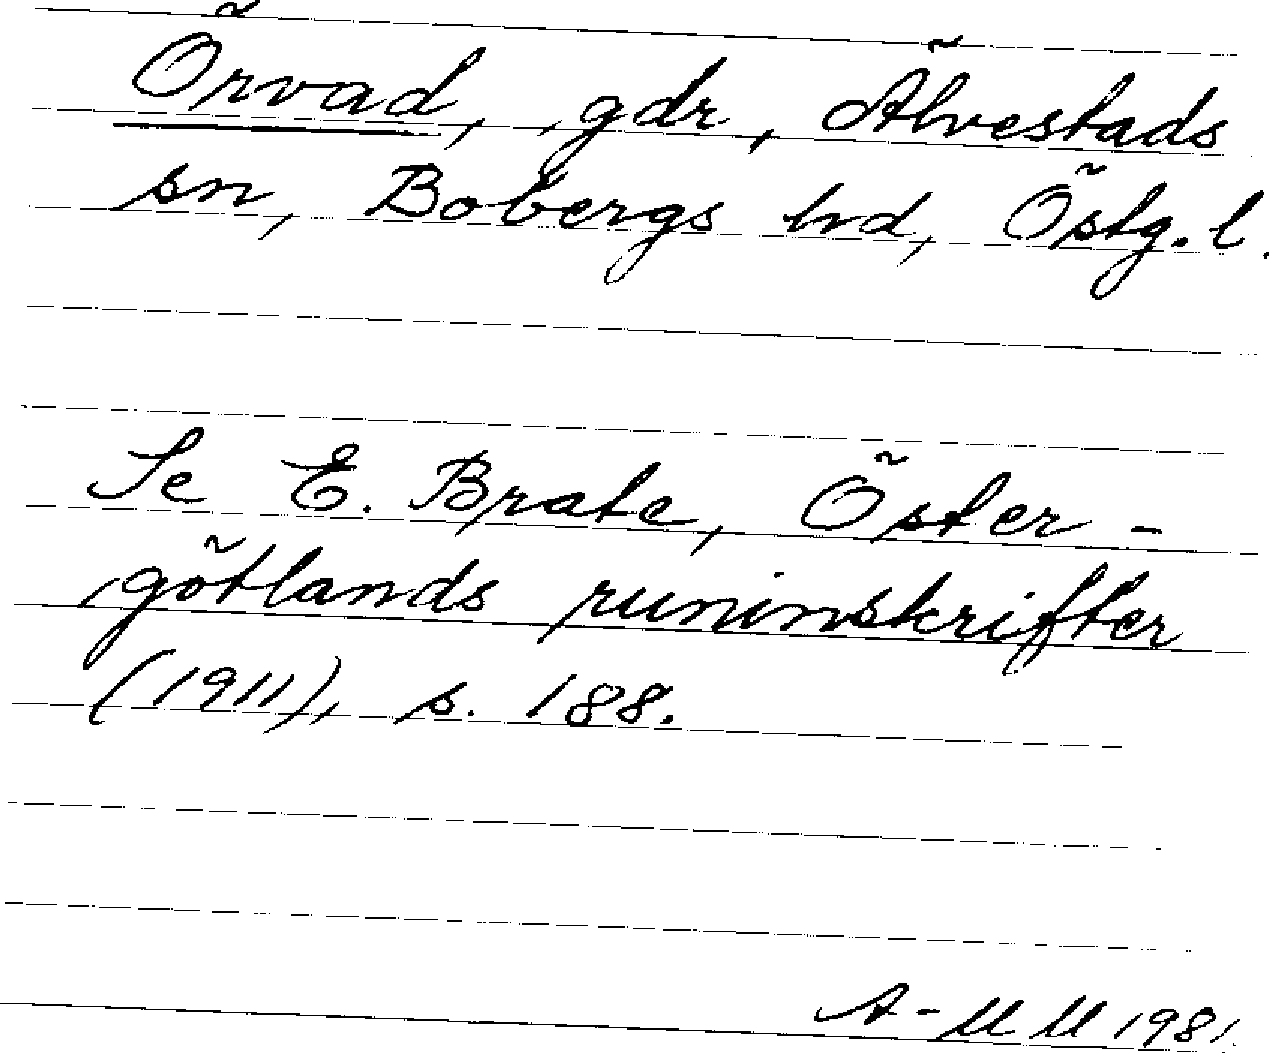 Örvad, gdr, Älvestads
sn, Bobergs hd, Östg. l.
Se E. Brate, Öster-
götlands runinskrifter
(1911), s. 188.
A-MM 1981.